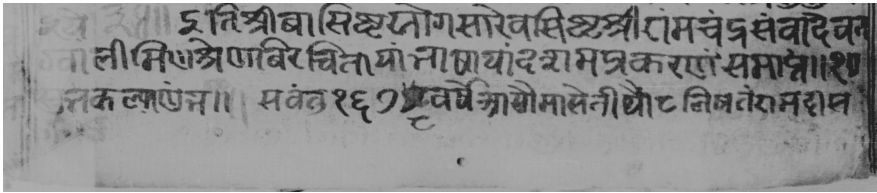 ॥ इति श्रीबासिष्टय्योगसारेवसिष्टश्रीरांमचंद्रसंवादेवन
वालीमिणश्रेणविरचितायांभाषायांदशमप्रकरणंसमाप्तं॥१०
कल्याणंम॥ सवंत१६७ वर्षेआसौमासेतीथौ८लिषतंरामदास